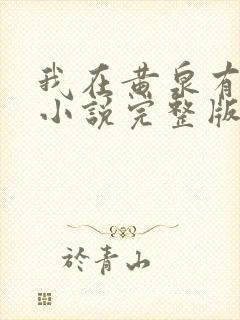 我在黄泉有
小說完整版
於青山